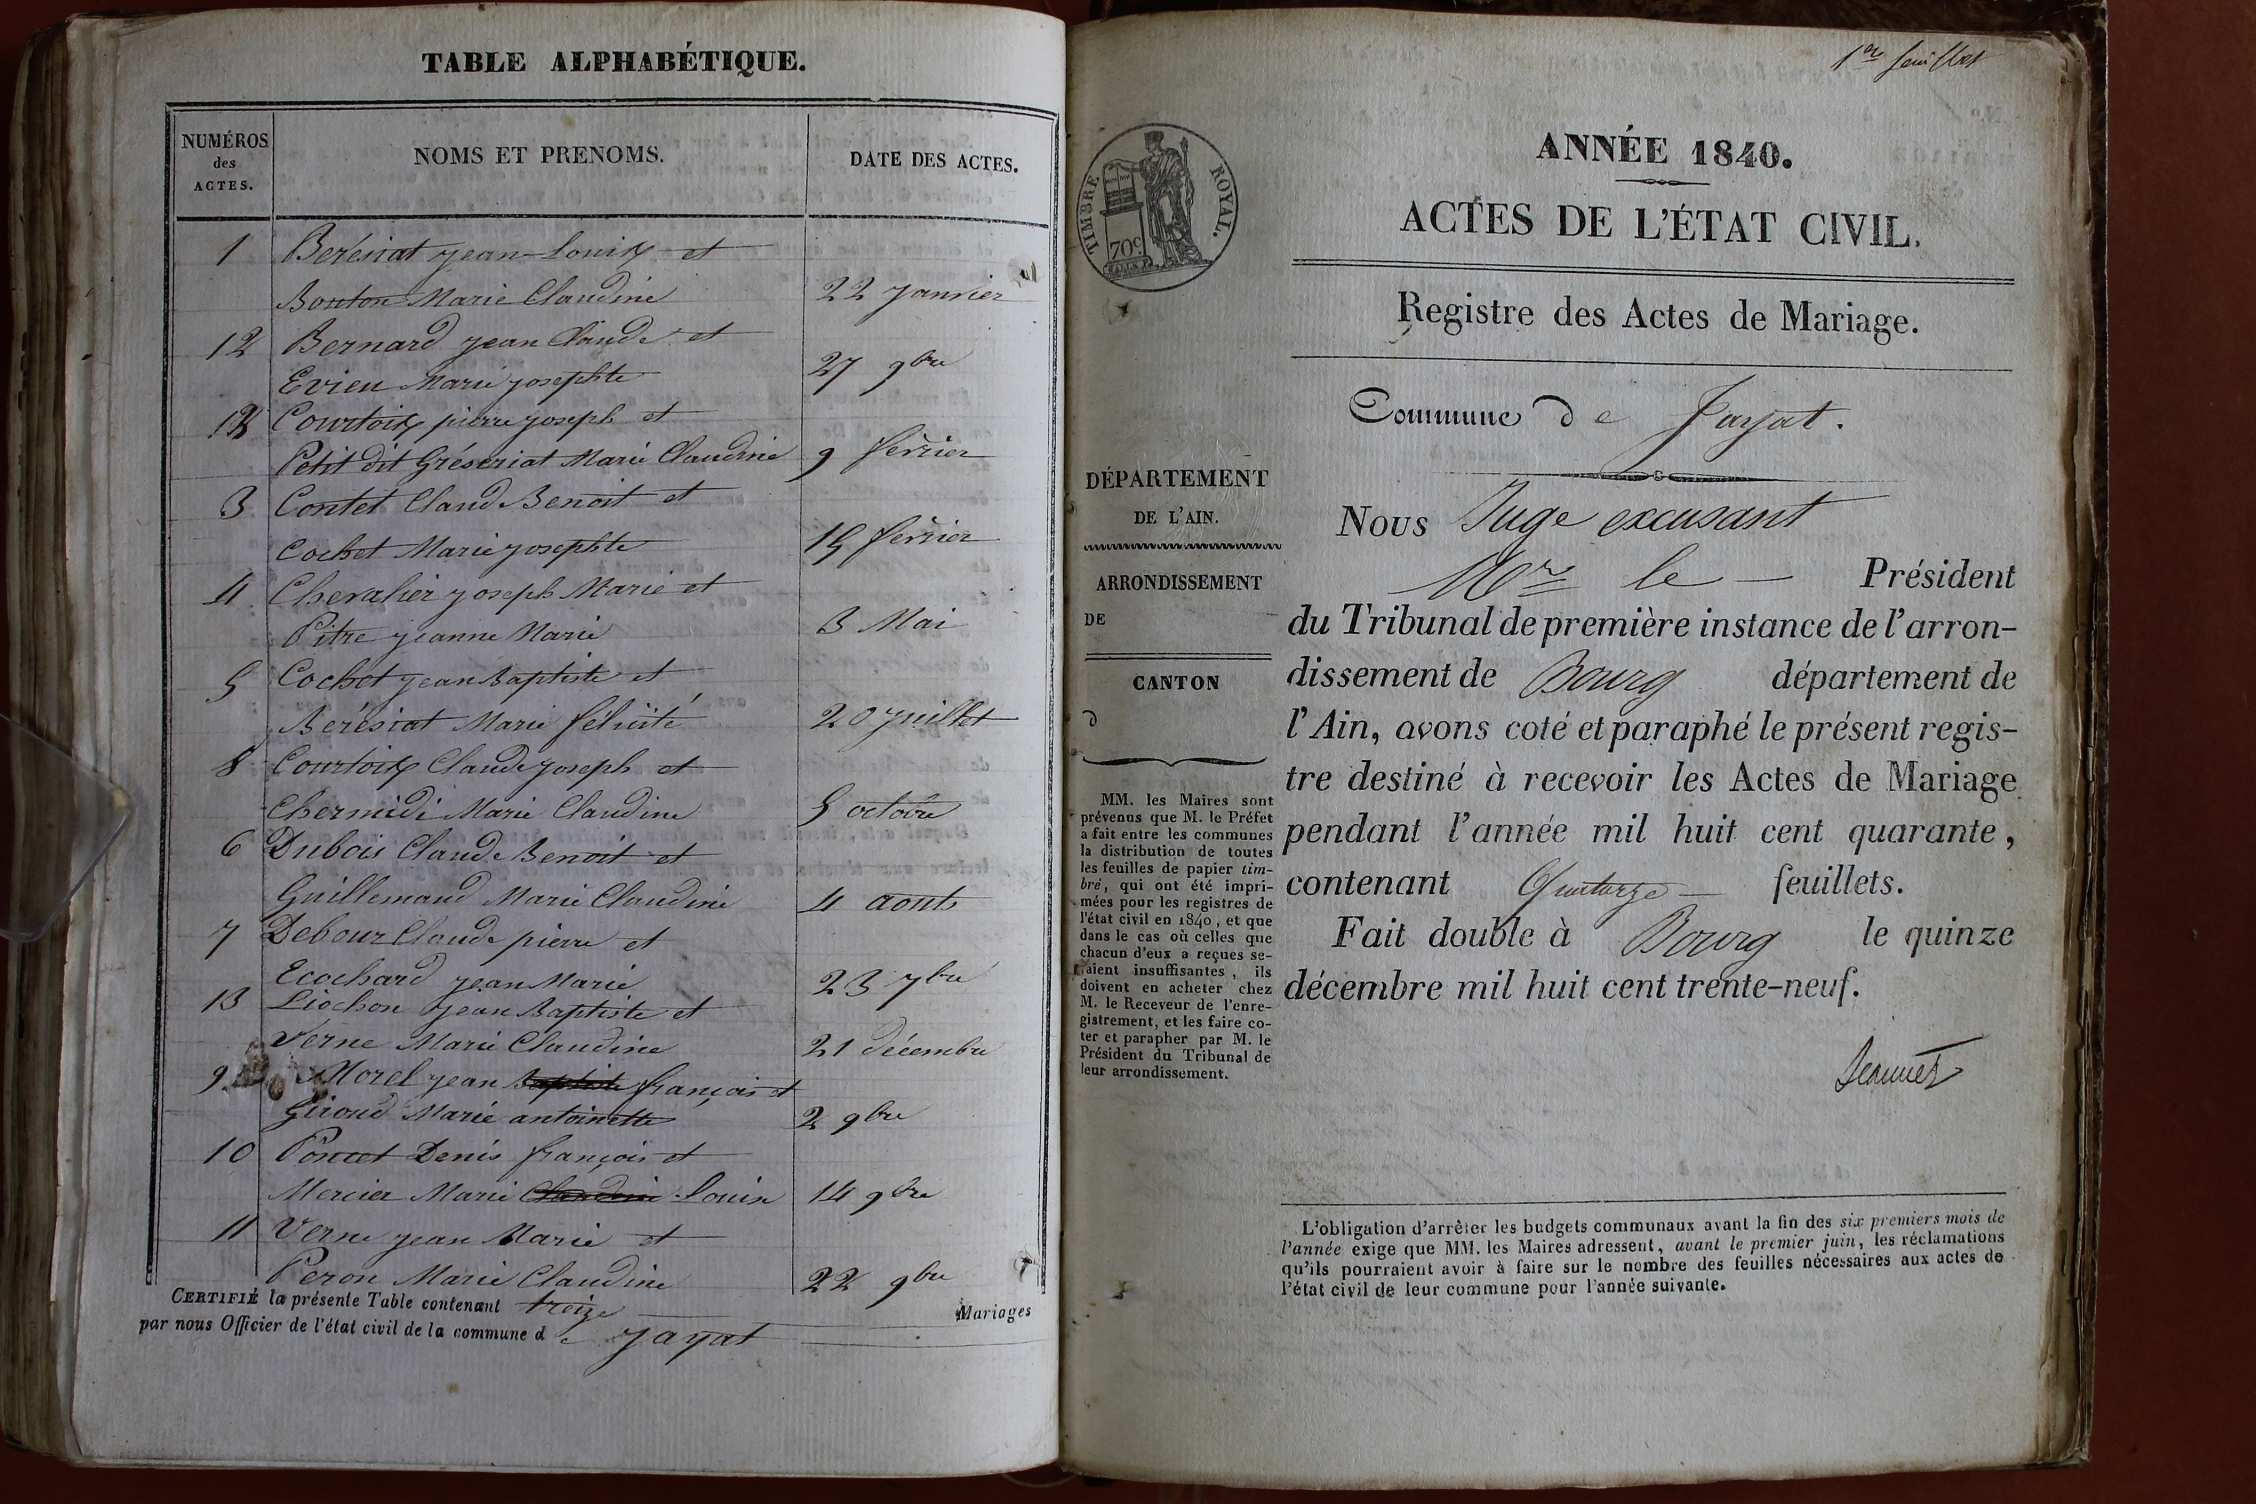 TABLE ALPHABÉTIQUE.
NUMÉROS des ACTES.
NOMS ET PRENOMS.
DATE DES ACTES.
1 Berésiat jean-Louis et
Bouton Marie Claudine 22 janvier
12 Bernard jean Claude et
Evieu Marie josephte 27 9bre
Courtois pierre joseph et
Petit dit Gréseriat Marie Claudine 9 février
3 Contet Claude Benoit et
Cochet Marie josephte 15 février
4 Chevalier joseph Marie et
Pitre jeanne Marie 3 Mai
5 Cochet jean Baptiste et
Berésiat Marie félicité 20 juillet
8 Courtois Claude joseph et
Chermidi Marie Claudine 5 octobre
6 Dubois Claude Benoit et
Guillemaud Marie Claudine 4 aouts
7 Debour Claude pierre et
Ecochard jean Marie 23 7bre
13 Liochon jean Baptiste et
Verne Marie Claudine 21 décembre
9 Morel jean Baptiste françois et
Giroud Marie antoinette 2 9bre
10 Poncet Denis françois et
Mercier Marie Claudine Louise 14 9bre
11 Verne jean Marie et
Peron Marie Claudine 22 9bre
CERTIFIÉ la présente Table contenant treize Mariages
par nous Officier de l'état civil de la commune de jayat
1er feuillet
TIMBRE ROYAL.
70c
ANNÉE 1840.
ACTES DE L'ÉTAT CIVIL.
Registre des Actes de Mariage.
Commune de Jayat.
DÉPARTEMENT
DE L'AIN.
ARRONDISSEMENT
DE
CANTON
d
MM. les Maires sont
prévenus que M. le Préfet
a fait entre les communes
la distribution de toutes
les feuilles de papier tim-
bré, qui ont été impri-
mées pour les registres de
l'état civil en 1840, et que
dans le cas où celles que
chacun d'eux a reçues se-
raient insuffisantes, ils
doivent en acheter chez
M. le Receveur de l'enre-
gistrement, et les faire co-
ter et parapher par M. le
Président du Tribunal de
leur arrondissement.
Nous Juge excusant
Mr le Président
du Tribunal de première instance de l'arron-
dissement de Bourg département de
l'Ain, avons coté et paraphé le présent regis-
tre destiné à recevoir les Actes de Mariage
pendant l'année mil huit cent quarante,
contenant Quatorze feuillets.
Fait double à Bourg le quinze
décembre mil huit cent trente-neuf.
L'obligation d'arrêter les budgets communaux avant la fin des six premiers mois de
l'année exige que MM. les Maires adressent, avant le premier juin, les réclamations
qu'ils pourraient avoir à faire sur le nombre des feuilles nécessaires aux actes de
l'état civil de leur commune pour l'année suivante.